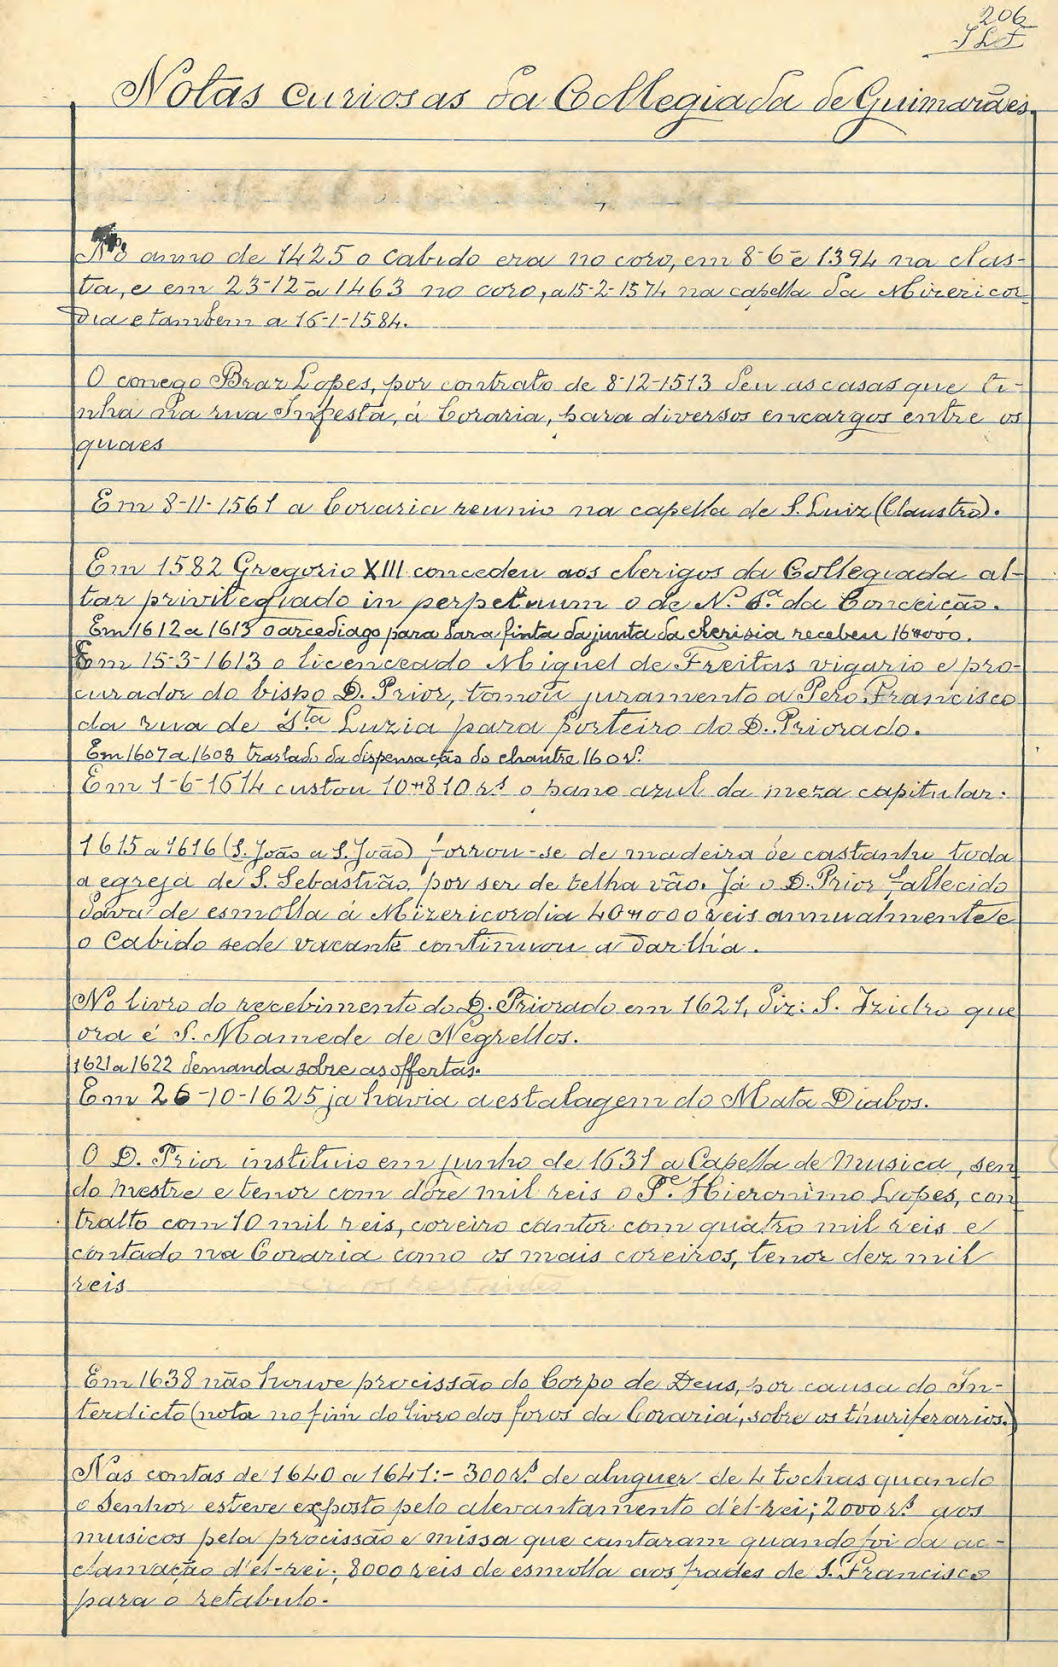 206
Notas curiosas da Collegiada de Guimarães
No anno de 1425 o cabido era no coro, em 8-6-e 1394 na claus-
tra, e em 23-12-a 1463 no coro, a 15-2-1574 na capella da Mizericor-
dia e tambem a 16-1-1584.
O conego Braz Lopes, por contrato de 8-12-1513 deu as casas que ti-
nha na rua Infesta, á Coraria, para diversos encargos entre os
quaes
Em 8-11-1561 a Coraria reunio na capella de S. Luiz (Claustro).
Em 1582 Gregorio XIII concedeu aos clerigos da Collegiada al-
tar privilegiado in perpetuum o de N. Sª. da Conceição.
Em 1612 a 1613 o arcediago para dar a finta da junta da clerisia recebeu 16$000.
Em 15-3-1613 o licenceado Miguel de Freitas vigario e pro-
curador do bispo D. Prior, tomou juramento a Pero Francisco
da rua de Sta Luzia para porteiro do D. Priorado.
Em 1607 a 1608 traslado da dispensação do chantre 160 rs.
Em 1-6-1614 custou 10$810 rs o pano azul da meza capitular.
1615 a 1616 (S. João a S. João) forrou-se de madeira de castanho toda
a egreja de S. Sebastião, por ser de telha vão. Já o D. Prior fallecido
dava de esmolla á Mizericordia 40$000 reis annualmente e
o Cabido sede vacante continuou a dar-lha.
No livro do recebimento do D. Priorado em 1621, diz: S. Izidro que
ora é S. Mamede de Negrellos.
1621 a 1622 demanda sobre as offertas.
Em 26-10-1625 ja havia a estalagem do Mata Diabos.
O D. Prior instituio em junho de 1631 a Capella de Musica, sen
do mestre e tenor com doze mil reis o Pe. Hieronimo Lopes, con
tralto com 10 mil reis, coreiro cantor com quatro mil reis e
contado na Coraria como os mais coreiros, tenor dez mil
reis
Em 1638 não houve procissão do Corpo de Deus, por causa do In-
terdicto (nota no fim do livro dos foros da Coraria, sobre os thuriferarios.)
Nas contas de 1640 a 1641:- 300 rs. de aluguer de 4 tochas quando
o Senhor esteve exposto pelo alevantamento d'el-rei; 2000 rs. aos
musicos pela procissão e missa que cantaram quando foi da ac-
clamação d'el-rei; 8000 reis de esmolla aos frades de S. Francisco
para o retabulo.